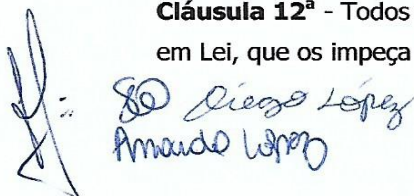 Cláusula 12ª - Todos
em Lei, que os impeça
Diego López
López